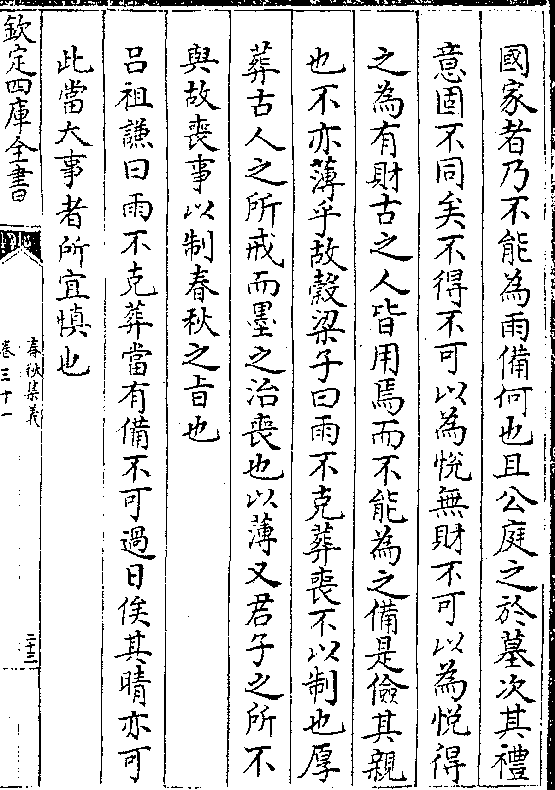 國家者乃不能為雨備何也且公庭之於墓次其禮
意固不同矣不得不可以為悅無財不可以為悅得
之為有財古之人皆用焉而不能為之備是儉其親
也不亦薄乎故榖梁子曰雨不克葬喪不以制也厚
葬古人之所戒而墨之治喪也以薄又君子之所不
與故喪事以制春秋之旨也
呂祖謙曰雨不克葬當有備不可過日俟其晴亦可
此當大事者所宜慎也
欽定四庫全書
春秋集義
卷三十一
二十三